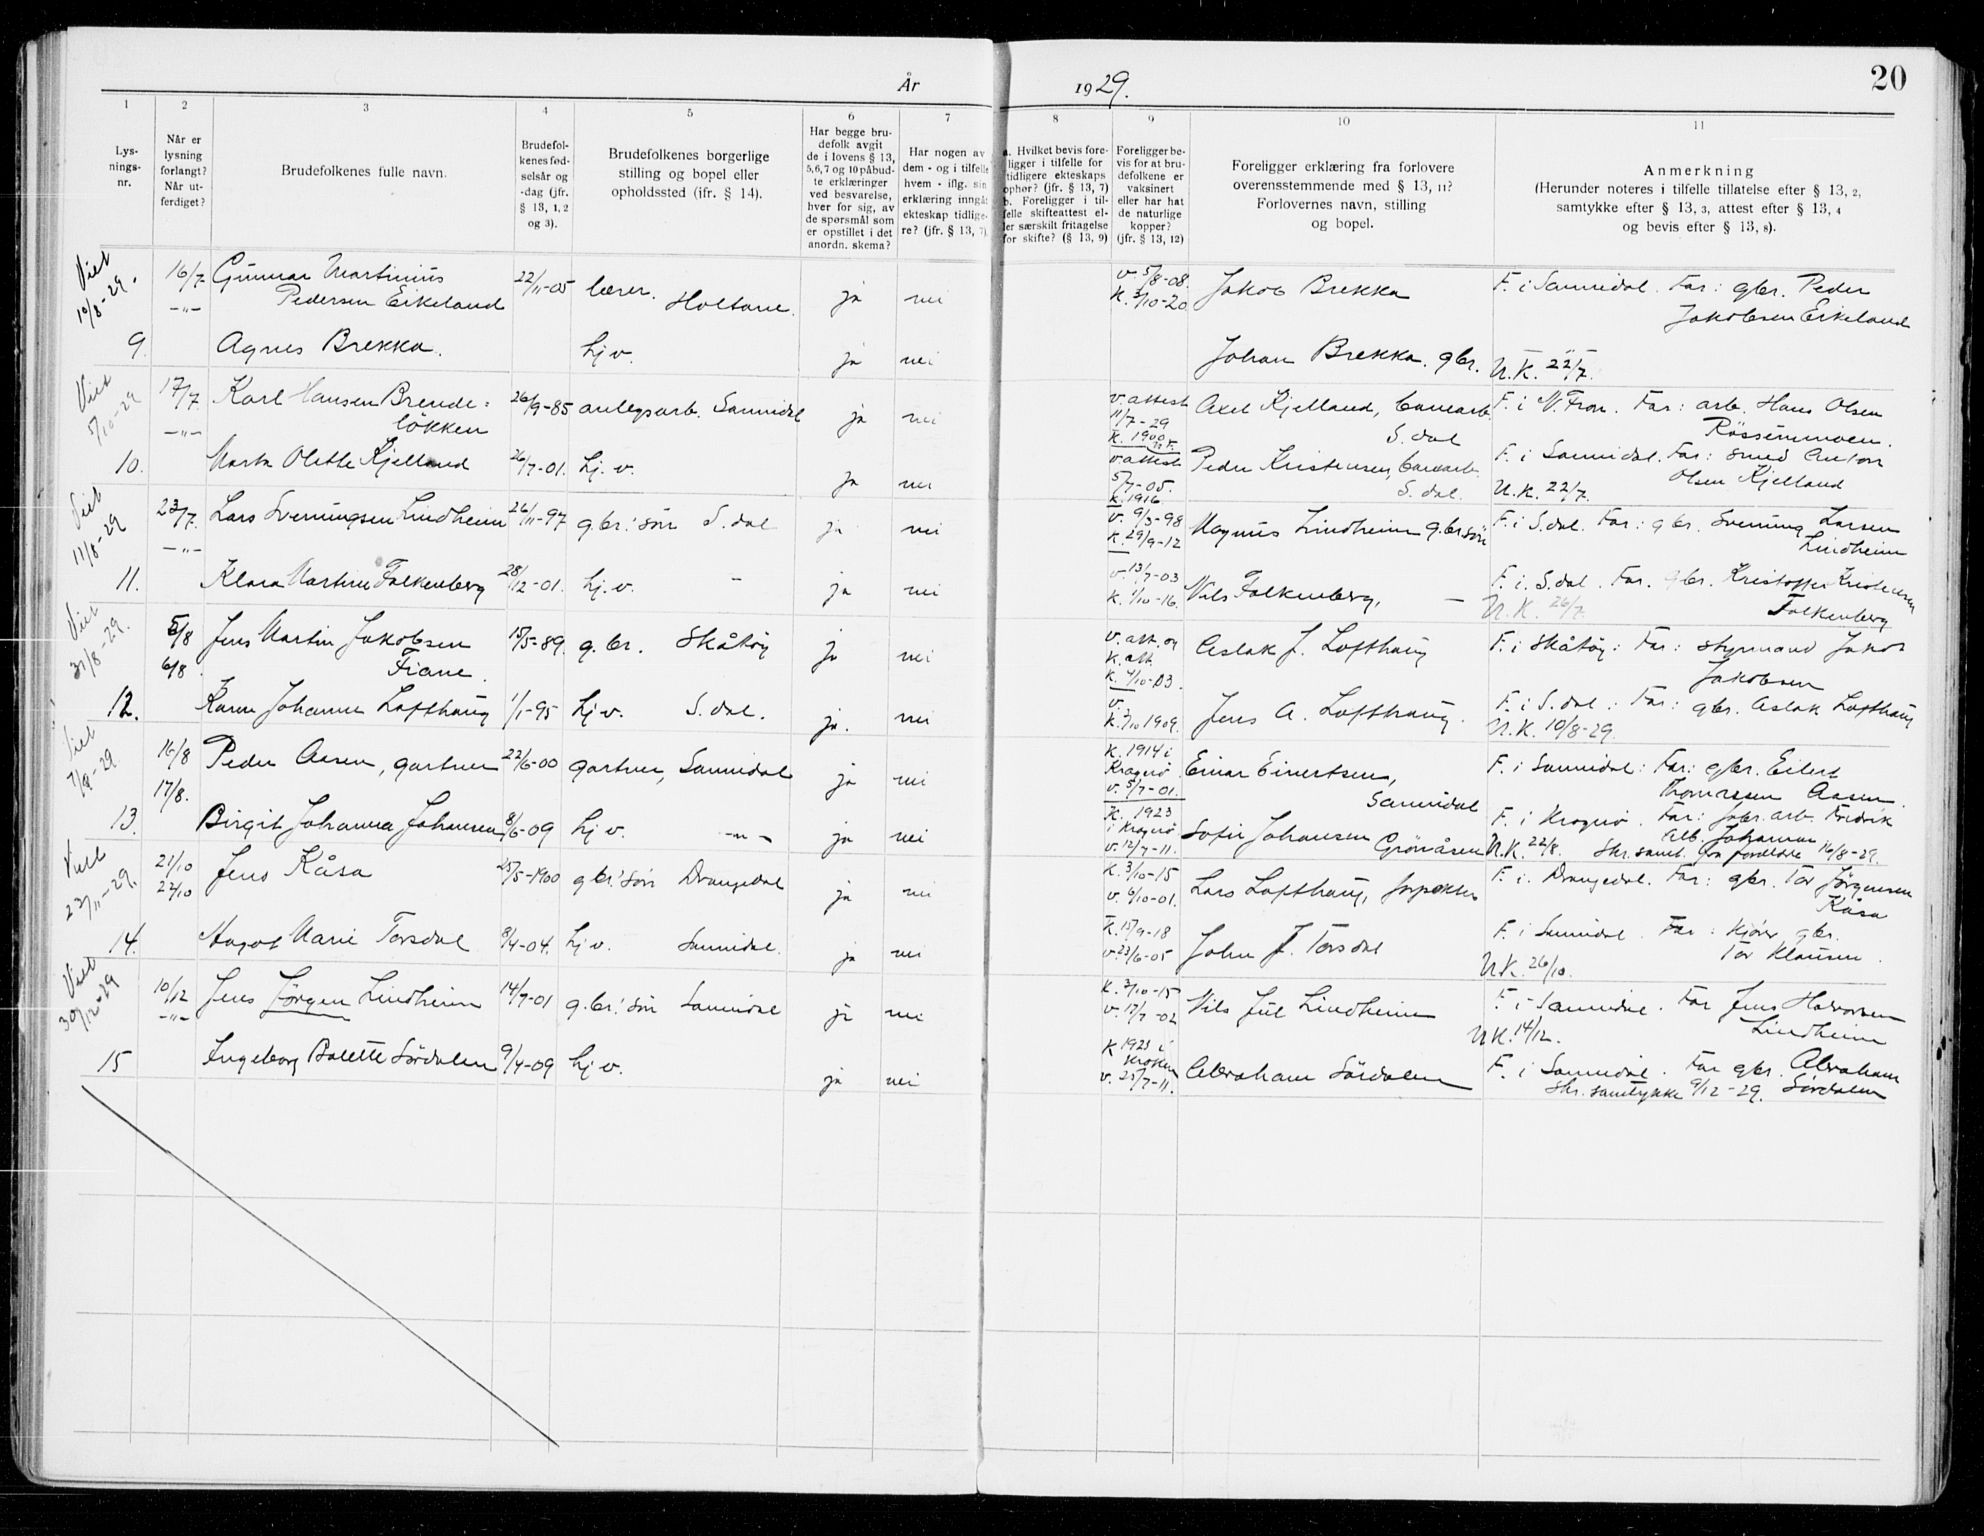 År 1929. 20
1 2 3 4 5 6 7 8 9 10 11
Lys-
nings-
nr.
Når er
lysning
forlangt?
Når ut-
ferdiget?
Brudefolkenes fulle navn.
Brudefol-
kenes fød-
selsår og
-dag (jfr.
§ 13, 1, 2
og 3).
Brudefolkenes borgerlige
stilling og bopel eller
opholdssted (ifr. § 14).
Har begge bru-
defolk avgit
de i lovens § 13,
5,6,7 og 10 påbud-
te erklæringer
ved besvarelse,
hver for sig, av
de spørsmål som
er opstillet i det
anordn. skema?
Har nogen av
dem - og i tilfelle
hvem - iflg. sin
erklæring inngåt
ekteskap tidlige-
re? (jfr. § 13, 7)
a. Hvilket bevis fore-
ligger i tilfelle for
tidligere ekteskaps
ophør? (jfr. § 13, 7)
b. Foreligger i til-
felle skifteattest el-
ler særskilt fritagelse
for skifte? (§ 13, 9)
Foreligger be-
vis for at bru-
defolkene er
vaksinert
eller har hat
de naturlige
kopper?
(jfr. § 13, 12)
Foreligger erklæring fra forlovere
overensstemmende med § 13, 11?
Forlovernes navn, stilling
og bopel.
Anmerkning
(Herunder noteres i tilfelle tillatelse efter § 13, 2,
samtykke efter § 13, 3, attest efter § 13, 4
og bevis efter § 13, 8).
Viet 10/8-29. 16/7 Gunnar Martinius 22/11-05 lærer. v. 5/8-08. Jakob Brekka F. i Sannidal. Far: gbr. Peder
-"- Pedersen Eikeland Holtane. ja nei K. 3/10-20 Jakobsen Eikeland
9. Agnes Brekka. hjv. ja nei Johan Brekka. gbr. U.K. 22/7.
Viet 5/10-29 17/7 Karl Hansen Brende- 26/9-85 anlegsarb. Sannidal ja nei v. attest Axel Kjelland, banearb. F. i N. Fron. Far: arb. Hans Olsen
-"- løkken 11/7-29 S.dal
K. 1900
10. Marta Olette Kjelland 26/7-01. hj. v. ja nei v. attest Peder Kristensen, banearb. F. i Sannidal. Far: smed Anton
5/7-05. S. dal. U.K. 22/7. Olsen Kjelland
K. 1916
Viet 11/8-29 23/7. Lars Sveningsen Lindheim 26/11-97 gbr.' søn S.dal ja nei v. 9/3-98 Magnus Lindheim g.br søn F. i S.dal. Far: gbr. Svening Larsen
-"- K. 29/9-12 Lindheim
11. Klara Martine Falkenberg 28/12-01. hj. v. - ja nei v. 13/7-03 Nils Falkenberg, - F. i. S.dal. Far. gbr. Kristoffer Kristensen
K. 1/10-16. U.K. 26/7. Falkenberg
Viet 31/8-29. 5/8 Jens Martin Jakobsen 15/5-89. g.br. Skåtøy ja nei v. att. og Aslak J. Lofthaug F. i Skåtøy: Far: styrmand Jakob
6/8. Fiane. K. att. Jakobsen
K. 4/10-03.
12. Karen Johanne Lofthaug 1/1-95 hjv. S.dal. ja. nei v. Jens A. Lofthaug. F. i S.dal: Far: gbr. Aslak Lofthaug
K. 3/10 1909. U.K. 10/8-29.
Viet 7/9-29 16/8 Peder Aasen, gartner 22/6-00 gartner, Sannidal ja nei K. 1914 i Einar Eivertsen, F. i Sannidal: Far: gbr. Eilert
17/8. Kragerø Sannidal Thomassen Aasen.
v. 5/7-01.
13. Birgit Johanna Johansen 8/6-09 hj v. -"- ja nei K. 1923 Sofie Johansen F. i Kragerø. Far: jobr. arb. Fredrik
i Kragerø Grönåsen Alb. Johansen
v. 12/7-11. U.K. 22/8. Skr. samt. fra foreldre 16/8-29.
Viet 22/11-29. 21/10 Jens Kåsa 25/5-1900 gbr.' søn Drangedal ja nei K. 3/10-15 Lars Lofthaug, F. i. Drangedal. Far: gbr. Tor Jørgensen
22/10 v. 6/10-01. Kåsa
14. Aagot Marie Torsdal 8/4-04. hj v. Sannidal. ja nei K. 15/9-18 John J. Torsdal F. i Sannidal. Far: gbr.
v. 23/6-05 U.K. 26/10. Tor Klausen.
Viet 30/12-29 10/12 Jens Jørgen Lindheim 14/7-01 g.br.' søn Sannidal ja nei K. 3/10-15 Nils Jul Lindheim F. i Sannidal. Far Jens Halvorsen
-"- v. 17/7-02 U.K. 14/12. Lindheim
15 Ingeborg Bolette Sørdalen 9/4-09 hj v. ja nei K 1923 i Abraham Sørdalen F. i Sannidal. Far gbr. Abraham
v. 25/7-11. Skr. samtykke 9/12-29. Sørdalen